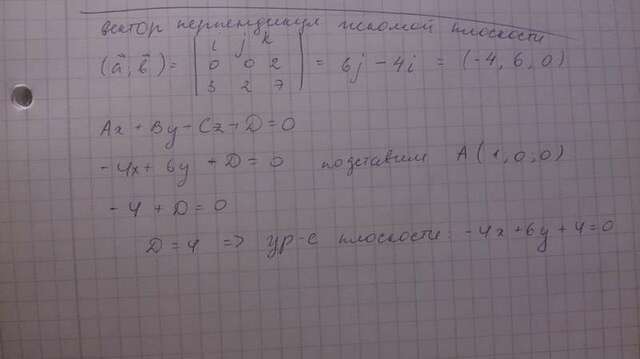 вектор перпендикул искомой плоскости
(a⃗, b⃗) = | i j k | = 6j − 4i = (-4, 6, 0)
| 0 0 2 |
| 3 2 7 |
Ax + By − Cz + D = 0
− 4x + 6y + D = 0 подставим A (1, 0, 0)
− 4 + D = 0
D = 4 => ур-е плоскости: − 4x + 6y + 4 = 0